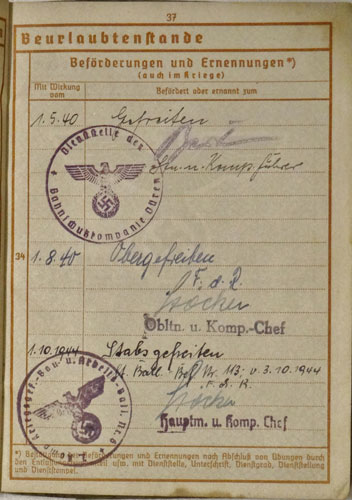 37
Beurlaubtenstande
Beförderungen und Ernennungen*)
(auch im Kriege)
Mit Wirkung vom
Befördert oder ernannt zum
1.5.40 Gefreiten
Dienststelle der
Ltn. u. Kompführer
34 1.8.40 Obergefreiten
F. d. R.
Obltn. u. Komp.-Chef
1.10.1944 Stabsgefreiten
lt. Batl. Bef. Nr. 113, v. 3.10.1944
F. d. R.
Hauptm. u. Komp. Chef
Kriegsgef.-Bau- u. Arbeits-Batl. Nr. 6
*) Beförderungen und Ernennungen nach Abschluß von Übungen durch
den usw. mit Dienststelle, Unterschrift, Dienstgrad, Dienststellung
und Dienststempel.